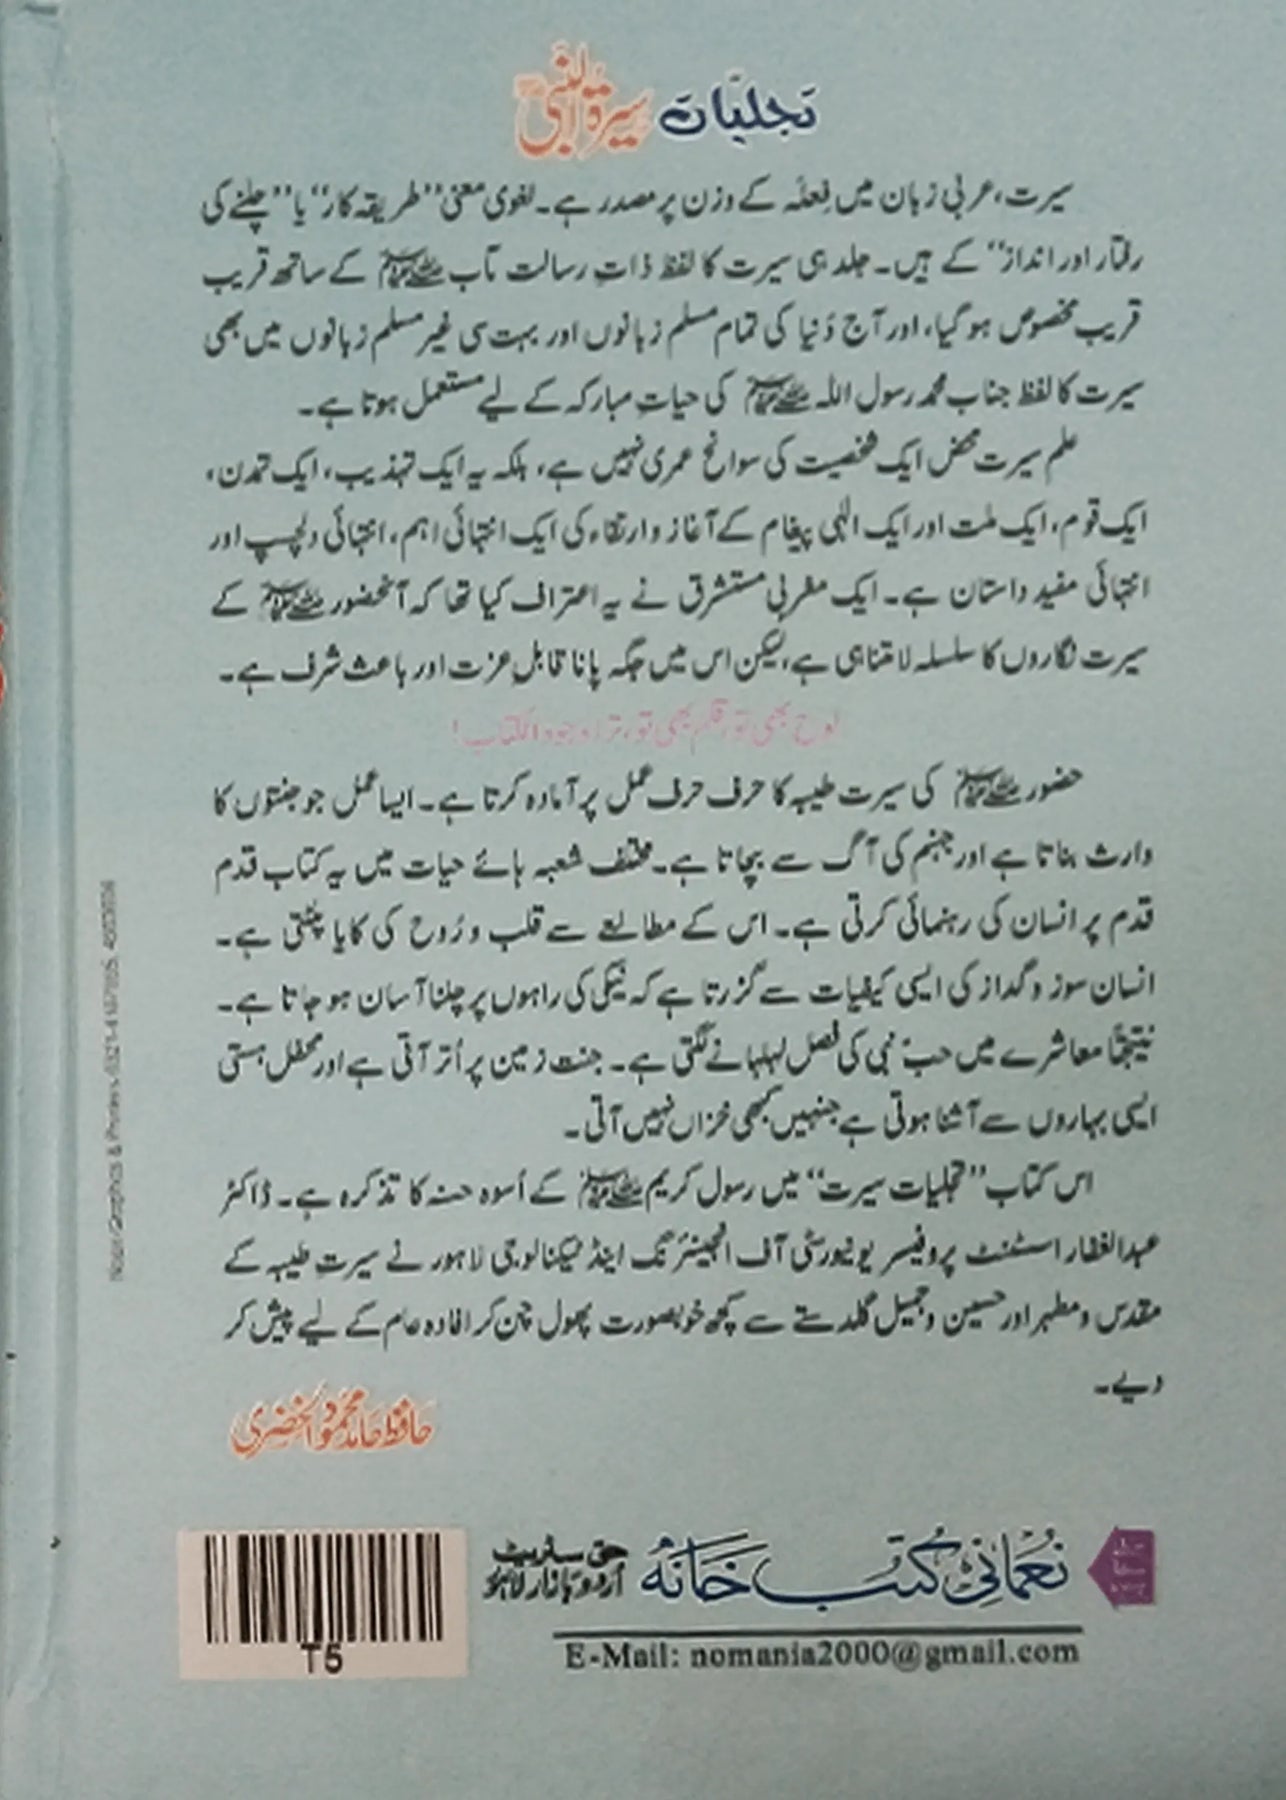 تجلیات سیرۃ النبی ﷺ
سیرت، عربی زبان میں فِعلَہ کے وزن پر مصدر ہے۔ لغوی معنی ’’طریقہ کار‘‘ یا ’’چلنے کی
رفتار اور انداز‘‘ کے ہیں۔ جلد ہی سیرت کا لفظ ذاتِ رسالت مآب ﷺ کے ساتھ قریب
قریب مخصوص ہو گیا، اور آج دُنیا کی تمام مسلم زبانوں اور بہت سی غیر مسلم زبانوں میں بھی
سیرت کا لفظ جناب محمد رسول اللہ ﷺ کی حیاتِ مبارکہ کے لیے مستعمل ہوتا ہے۔
علم سیرت محض ایک شخصیت کی سوانح عمری نہیں ہے، بلکہ یہ ایک تہذیب، ایک تمدن،
ایک قوم، ایک ملت اور ایک الٰہی پیغام کے آغاز و ارتقاء کی ایک انتہائی اہم، انتہائی دلچسپ اور
انتہائی مفید داستان ہے۔ ایک مغربی مستشرق نے یہ اعتراف کیا تھا کہ آنحضور ﷺ کے
سیرت نگاروں کا سلسلہ لا متناہی ہے، لیکن اس میں جگہ پانا قابلِ عزت اور باعث شرف ہے۔
لوح بھی تو، قلم بھی تو، ترا وجود الکتاب!
حضور ﷺ کی سیرت طیبہ کا حرف حرف عمل پر آمادہ کرتا ہے۔ ایسا عمل جو جنتوں کا
وارث بناتا ہے اور جہنم کی آگ سے بچاتا ہے۔ مختلف شعبہ ہائے حیات میں یہ کتاب قدم
قدم پر انسان کی رہنمائی کرتی ہے۔ اس کے مطالعے سے قلب و رُوح کی کایا پلٹتی ہے۔
انسان سوز و گداز کی ایسی کیفیات سے گزرتا ہے کہ نیکی کی راہوں پر چلنا آسان ہو جاتا ہے۔
نتیجتاً معاشرے میں حبِّ نبی کی فصل لہلہانے لگتی ہے۔ جنت زمین پر اُتر آتی ہے اور محفل ہستی
ایسی بہاروں سے آشنا ہوتی ہے جنہیں کبھی خزاں نہیں آتی۔
اس کتاب ’’تجلیات سیرت‘‘ میں رسول کریم ﷺ کے اُسوہ حسنہ کا تذکرہ ہے۔ ڈاکٹر
عبدالغفار اسسٹنٹ پروفیسر یونیورسٹی آف انجینئرنگ اینڈ ٹیکنالوجی لاہور نے سیرتِ طیبہ کے
مقدس و مطہر اور حسین و جمیل گلدستے سے کچھ خوبصورت پھول چن کر افادہ عام کے لیے پیش کر
دیے۔
حافظ حامد محمود الخضری
نعمانی کتب خانہ
حق سٹریٹ
اُردو بازار لاہور
E-Mail: nomania2000@gmail.com
T5